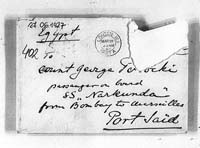 Egypt
402 To
Count George
passenger on board
SS "Narkunda"
from Bombay to Marseilles
Port Said